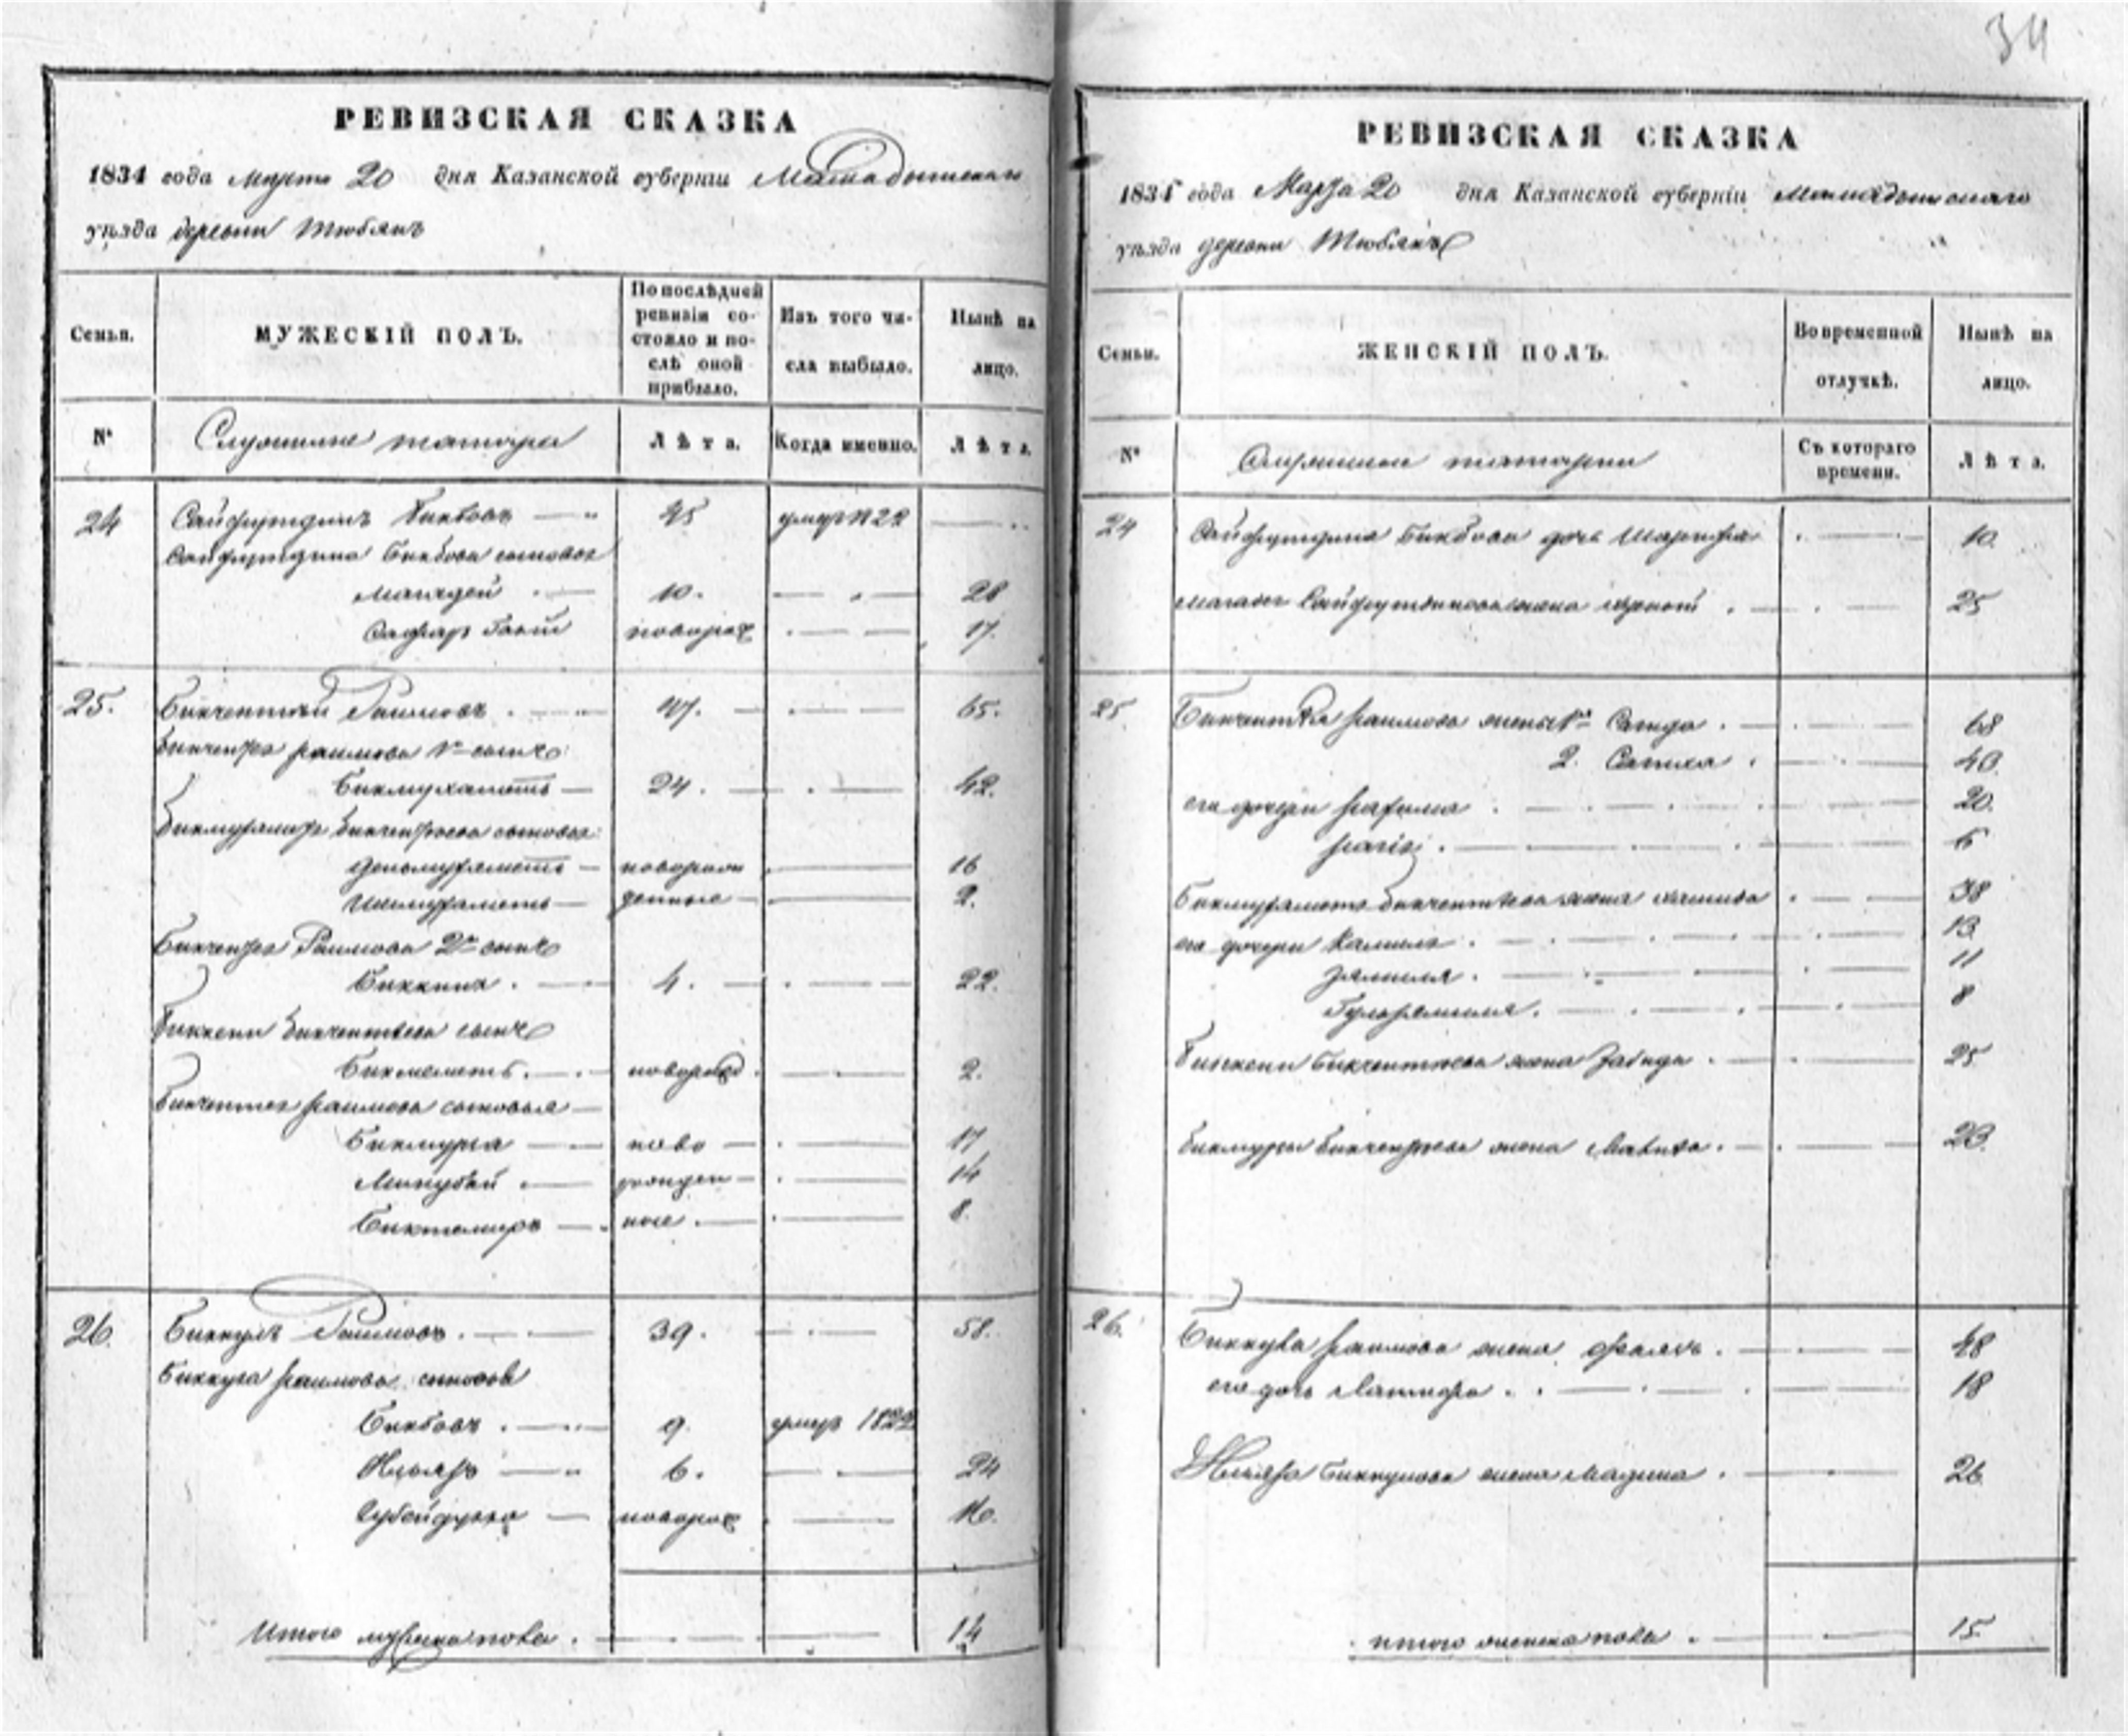 34
РЕВИЗСКАЯ СКАЗКА
1834 года марта 20 дня Казанской губерніи Мамадышскаго
уѣзда деревни Тюбякъ
Семьи.
МУЖЕСКІЙ ПОЛЪ.
По послѣдней ревизіи состояло и послѣ оной прибыло.
Изъ того числа выбыло.
Нынѣ на лицо.
№
татары
Лѣта.
Когда именно.
Лѣта.
24 Сайфутдинъ Бикбовъ 45
Сайфутдина Бикбова сыновья
Магадей 10. 28
17.
25. Бикчентей Раимовъ 47. 65.
Бикчентея Раимова 1й сынъ
Бикмухаметъ 24. 42.
Бикмухамета Бикчентеева сыновья
новорож 16
денные 2.
Бикчентея Раимова 2й сынъ
Биккиня 4. 22.
Биккени Бикчентеева сынъ
Бикмаметь новорож 2.
Бикчентея Раимова сыновья
Бикмурза ново 17
Минубай рожден 14
Биктемиръ ные 8.
26. Биккулъ Раимовъ 39. 58.
Биккула Раимова сыновья
Бикбовъ 9. умеръ 1822
Ильяръ 6. 24
новорож 16.
Итого мужеска пола 14
РЕВИЗСКАЯ СКАЗКА
1834 года Марта 20 дня Казанской губерніи Мамадышскаго
уѣзда деревни Тюбякъ
Семьи.
ЖЕНСКІЙ ПОЛЪ.
Во временной отлучкѣ.
Нынѣ на лицо.
№
татарки
Съ котораго времени.
Лѣта.
24 Сайфутдина Бикбова дочь Шарифа 10.
Сайфутдинова жена 25
25 Бикчентея Раимова жены 1я Сагида 68
2. Салиха 40.
его дочери 20.
6
Бикмухамета Бикчентеева жена 38
его дочери Камиля 13
Зямиля 11
Гульзямиля 8
Биккени Бикчентеева жена Забида 25
Бикмурзы Бикчентеева жена 23.
26. Биккула Раимова жена 48
его дочь 18
Ильяра Биккулова жена Мадина 26
итого женска пола 15